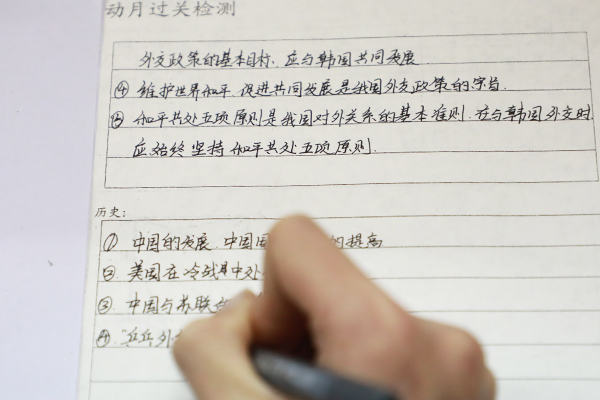 动月过关检测
外交政策的基本目标，应与韩国共同发展
④ 维护世界和平，促进共同发展是我国外交政策的宗旨.
⑤ 和平共处五项原则是我国对外关系的基本准则. 在与韩国外交时
应始终坚持和平共处五项原则.
历史：
① 中国的发展，中国国 的提高
② 美国在冷战中处
③. 中国与苏联
④. “乒乓外